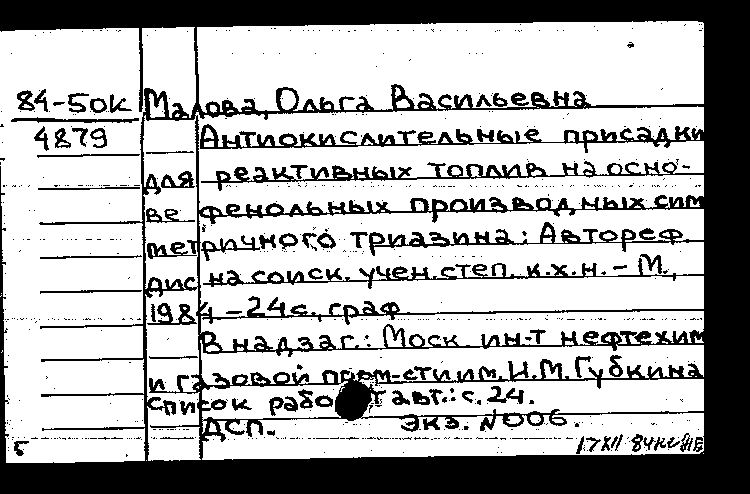 84-50к Малова, Ольга Васильевна
4879 Антиокислительные присадки
для реактивных топлив на осно-
ве фенольных производных сим
метричного триазина: Автореф.
дис на соиск. учен. степ. к.х.н. - М.,
1984 - 24с., граф
В надзаг.: Моск ин-т нефтехим
и газовой пром-сти им. И.М. Губкина
Список работ авт.: с. 24.
ДСП. Экз. №006.
5 17 XII